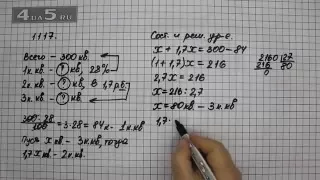 4 da 5 .ru
1117.
Всего – 300 кв.
1 к. кв – ? кв, 28%
2 к. кв – ? кв, в 1,7 р. б.
3 к. кв – ? кв.
300·28 / 100 = 3·28 = 84 к – 1 к. кв
Пусть x кв – 3 к. кв, тогда
1,7x кв – 2 к. кв.
Сост. и реш. ур-е.
x + 1,7x = 300 – 84
(1 + 1,7)x = 216
2,7x = 216
x = 216 : 2,7
x = 80 кв – 3 к. кв
1,7 ·
2160 27
216 80
0